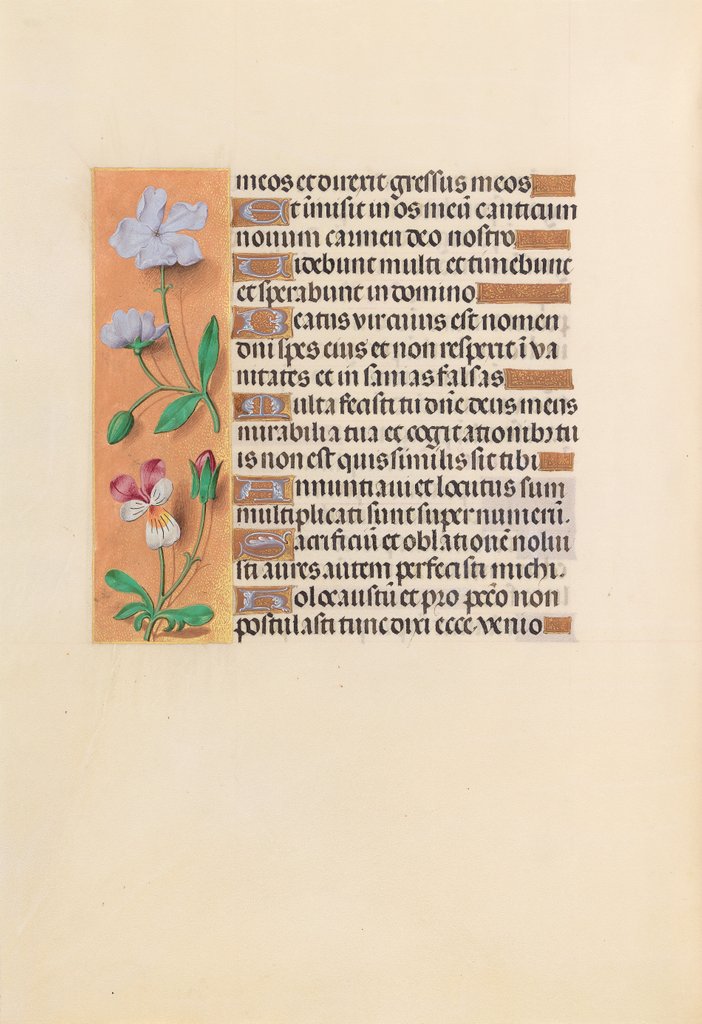 meos et direxit gressus meos
Et īmisit in os meū canticum
novum carmen deo nostro
Videbunt multi et timebunt
et sperabunt in domino
Beatus vir cuius est nomen
dn̄i spes eius et non respexit ī va
nitates et in sanias falsas
Multa fecisti tu dn̄e deus meus
mirabilia tua et cogitationibꝫ tu
is non est quis similis sit tibi
Annuntiavi et locutus sum
multiplicati sunt super numerū.
Sacrificiū et oblationē nolui
sti aures autem perfecisti michi.
Holocaustū et pro pc̄c̄o non
postulasti tunc dixi ecce venio